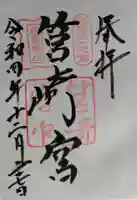 奉拝
筥崎宮
令和四年十二月二日